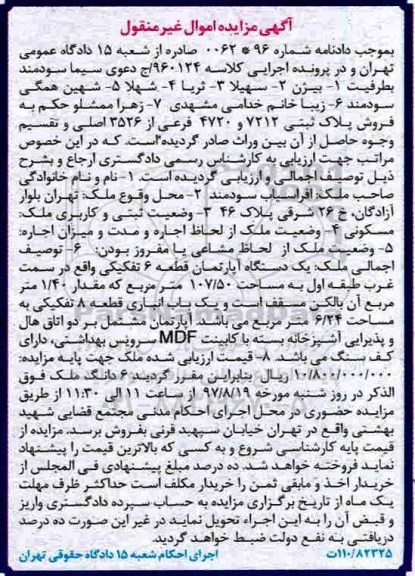 آگهی مزایده اموال غیر منقول
بموجب دادنامه شماره ۹۶ * ۰۰۶۲ صادره از شعبه ۱۵ دادگاه عمومی
تهران و در پرونده اجرایی کلاسه ۹۶۰۱۲۴/ج دعوی سیما سودمند
بطرفیت ۱- بیژن ۲- سهیلا ۳- ثریا ۴- شهلا ۵- شهین همگی
سودمند ۶- زیبا خانم خدامی مشهدی ۷- زهرا ممشلو حکم به
فروش پلاک ثبتی ۷۲۱۲ و ۴۷۲۰ فرعی از ۳۵۲۶ اصلی و تقسیم
وجوه حاصل از آن بین وراث صادر گردیده است. که در این خصوص
مراتب جهت ارزیابی به کارشناس رسمی دادگستری ارجاع و بشرح
ذیل توصیف اجمالی و ارزیابی گردیده است. ۱- نام و نام خانوادگی
صاحب ملک: افراسیاب سودمند ۲- محل وقوع ملک: تهران بلوار
آزادگان، خ ۲۶ شرقی پلاک ۴۶ ۳- وضعیت ثبتی و کاربری ملک:
مسکونی ۴- وضعیت ملک از لحاظ اجاره و مدت و میزان اجاره:
۵- وضعیت ملک از لحاظ مشاعی یا مفروز بودن: ۶- توصیف
اجمالی ملک: یک دستگاه آپارتمان قطعه ۶ تفکیکی واقع در سمت
غرب طبقه اول به مساحت ۱۰۷/۵۰ متر مربع که مقدار ۱/۴۰ متر
مربع آن بالکن مسقف است و یک باب انباری قطعه ۸ تفکیکی به
مساحت ۶/۲۴ متر مربع می باشد. آپارتمان مشتمل بر دو اتاق هال
و پذیرایی آشپزخانه بسته با کابینت MDF سرویس بهداشتی، دارای
کف سنگ می باشد. ۸- قیمت ارزیابی شده ملک جهت پایه مزایده:
۱۰/۸۰۰/۰۰۰/۰۰۰ ریال بنابراین مقرر گردید ۶ دانگ ملک فوق
الذکر در روز شنبه مورخه ۹۷/۸/۱۹ از ساعت ۱۱ الی ۱۱:۳۰ از طریق
مزایده حضوری در محل اجرای احکام مدنی مجتمع قضایی شهید
بهشتی واقع در تهران خیابان سپهبد قرنی بفروش برسد. مزایده از
قیمت پایه کارشناسی شروع و به کسی که بالاترین قیمت را پیشنهاد
نماید فروخته خواهد شد. ده درصد مبلغ پیشنهادی فی المجلس از
خریدار اخذ و مابقی ثمن را خریدار مکلف است حداکثر ظرف مهلت
یک ماه از تاریخ برگزاری مزایده به حساب سپرده دادگستری واریز
و قبض آن را به این اجراء تحویل نماید در غیر این صورت ده درصد
دریافتی به نفع دولت ضبط خواهد گردید.
۱۱۰/۸۲۳۲۵ت اجرای احکام شعبه ۱۵ دادگاه حقوقی تهران